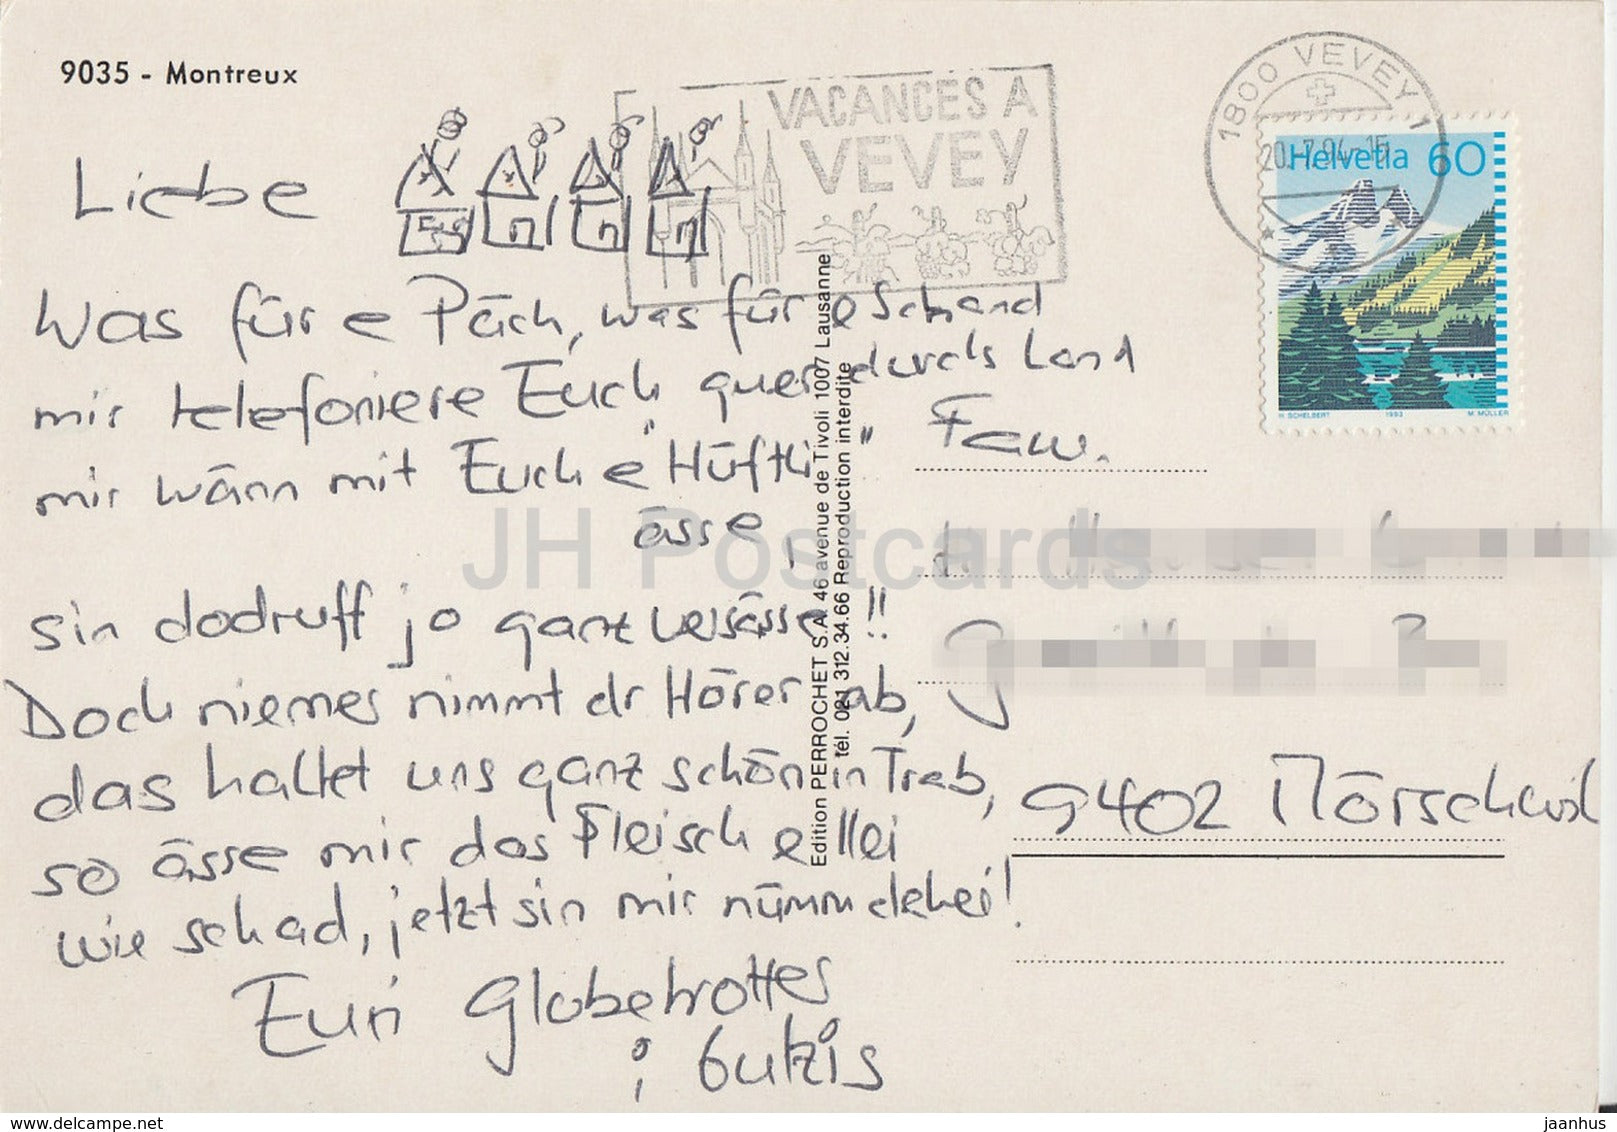 9035 - Montreux
VACANCES A
VEVEY
1800 VEVEY 1
20.-7.94-15
Helvetia 60
H. SCHELBERT 1993 M. MÜLLER
Liebe
Was für e Päch, was für e Schand
mir telefoniere Euch quer durchs Land
mir wänn mit Euch e "Hüftli"
ässe,
sin dodruff jo ganz versässe!!
Doch niemes nimmt dr Hörer ab,
das haltet uns ganz schön in Trab,
so ässe mir das Fleisch ellei
wie schad, jetzt sin mir nümm dehei!
Euri Globetrotter
Edition PERROCHET S.A. 46 avenue de Tivoli 1007 Lausanne
tél. 021 312.34.66 Reproduction interdite
Fam.
9402 Mörschwil
JH Postcards
delcampe.net
jaanhus